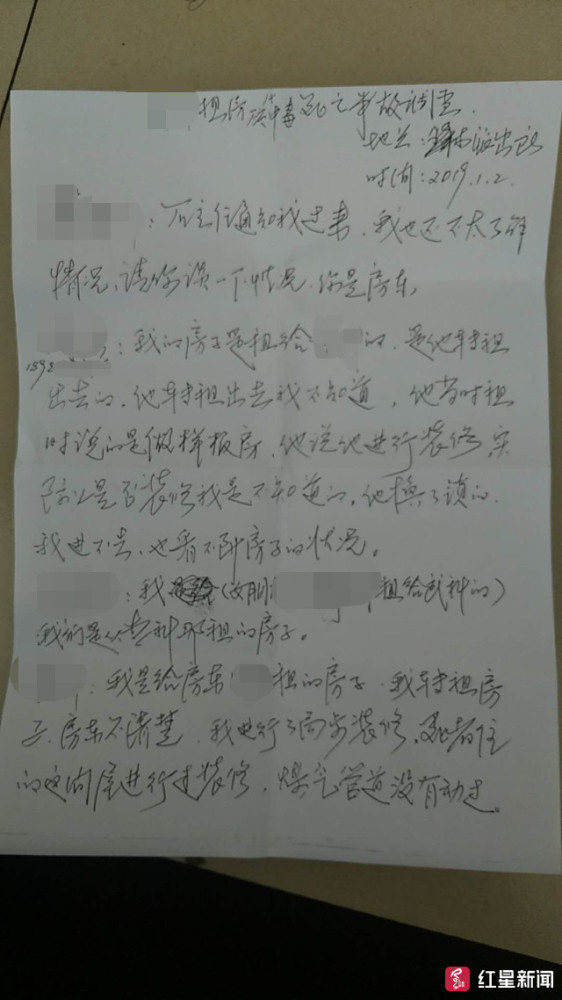 租房 中毒死亡事故调查.
地点: 派出所
时间: 2019.1.2.
: 主任通知我过来, 我也还不太了解
情况, 请你谈一下情况, 你是房东,
: 我的房子是租给 的, 是他转租
出去的, 他转租出去我不知道, 他当时租
时说的是做样板房, 他说他进行装修, 实
际上是否装修我是不知道的, 他换了锁的,
我进不去, 也看不到房子的状况。
: 我 (女朋 租给 的)
我们是从 那租的房子。
: 我是给房东 租的房子, 我转租房
子, 房东不清楚, 我进行了同步装修, 死者住
的这间屋进行过装修, 煤气管道没有动过。
红星新闻